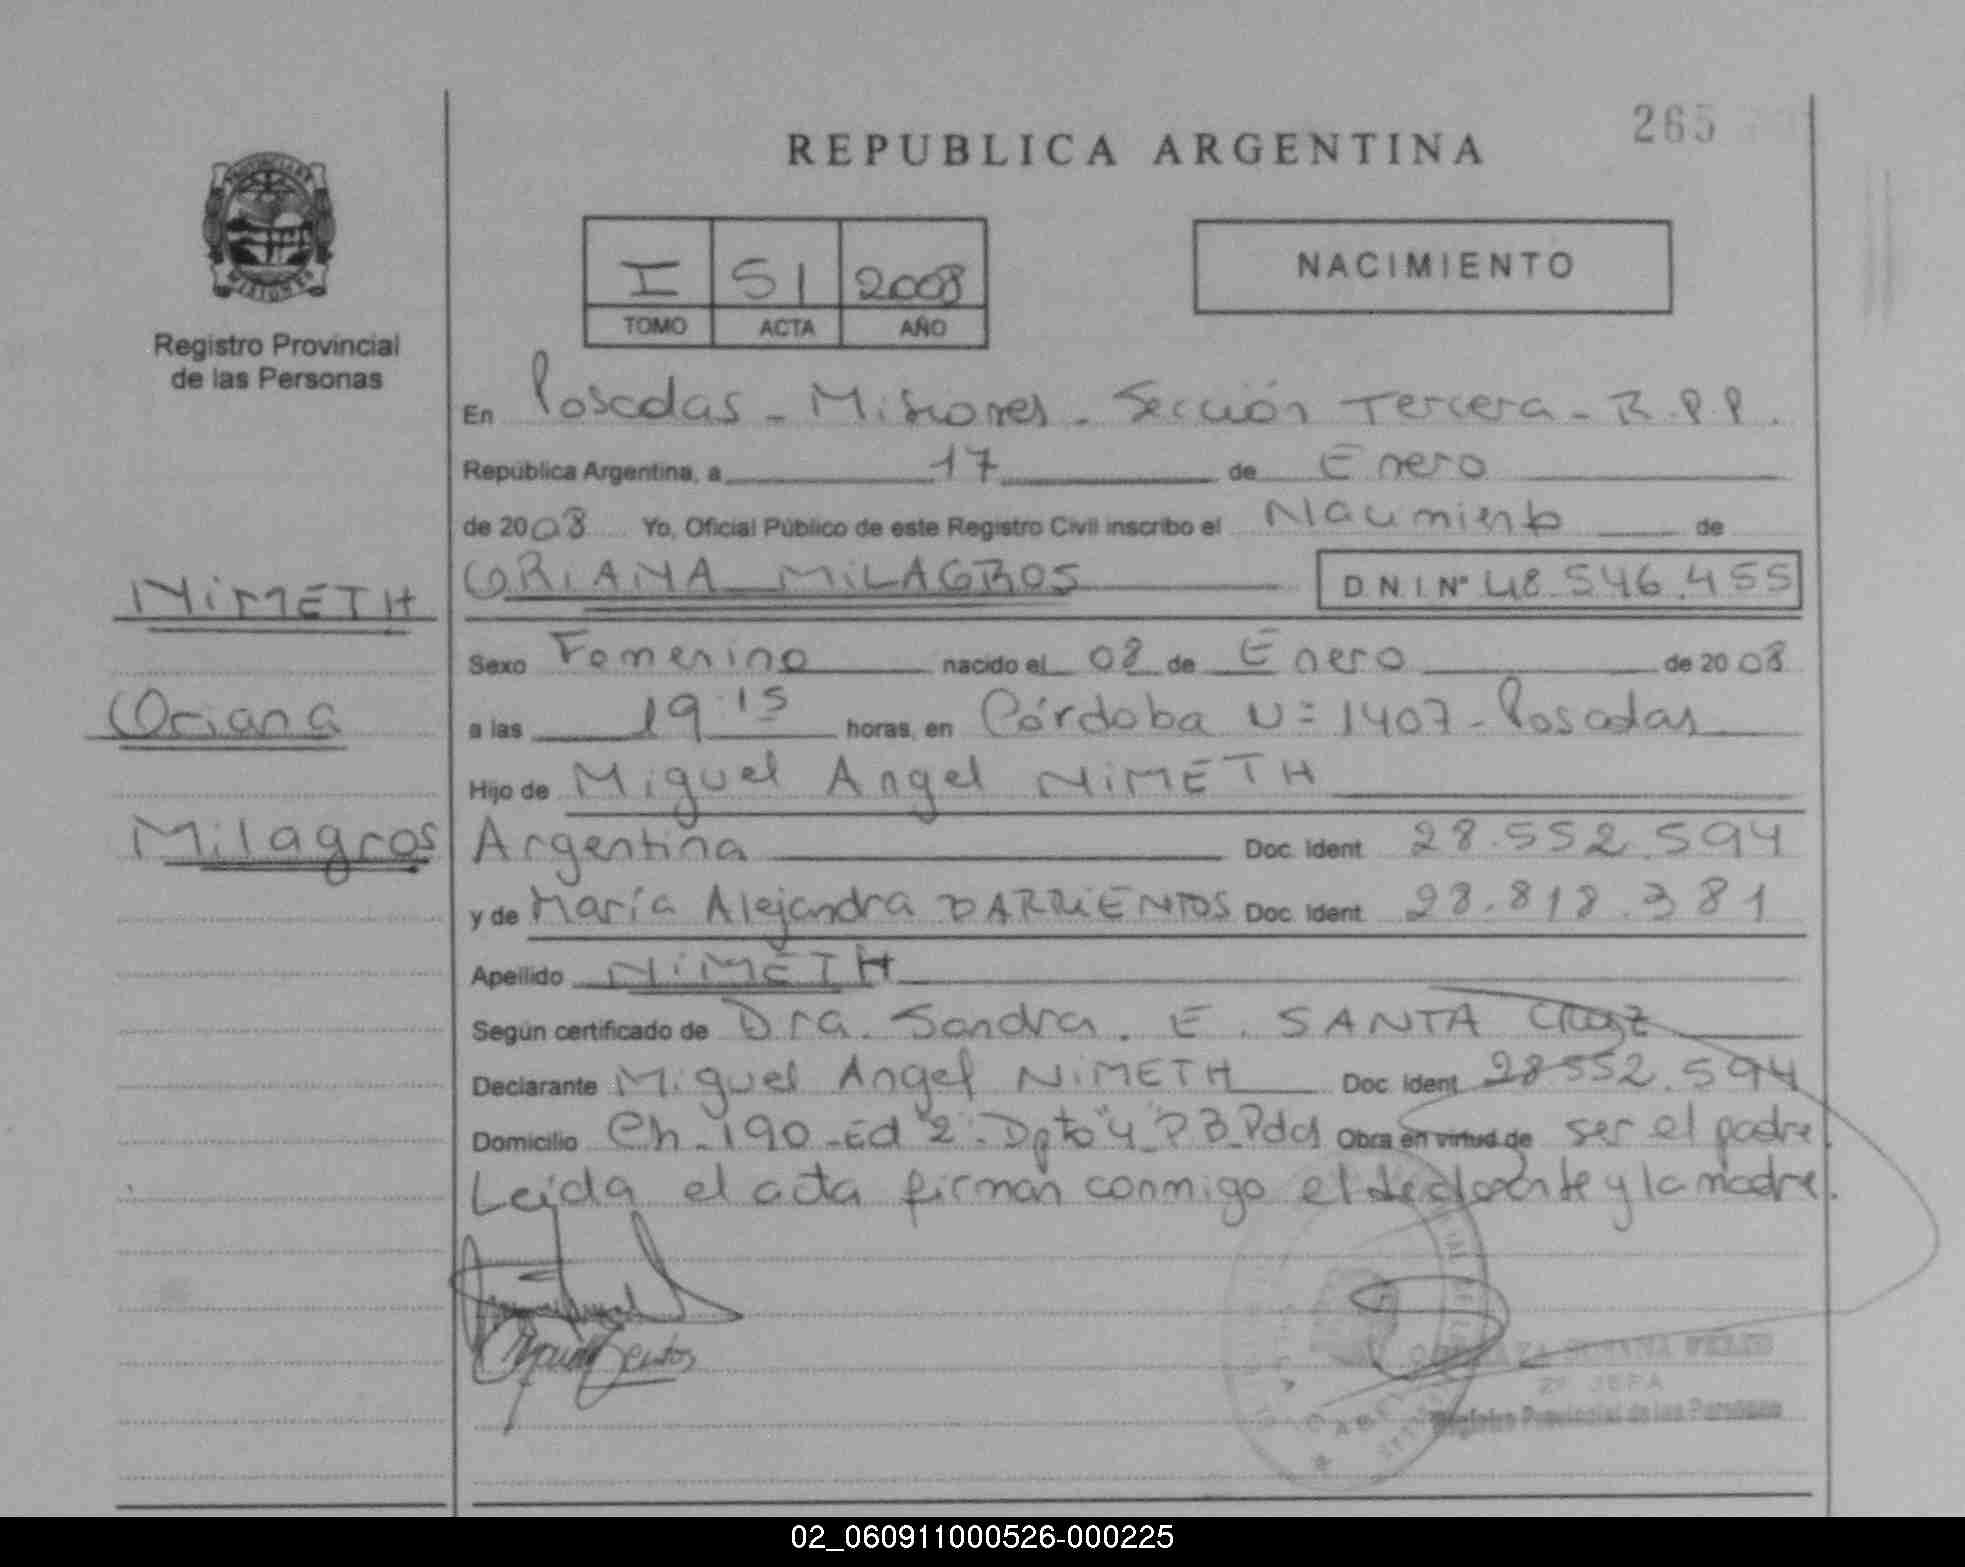 265
REPUBLICA ARGENTINA
PROVINCIA DE
MISIONES
Registro Provincial
de las Personas
I 51 2008
TOMO ACTA AÑO
NACIMIENTO
En Posadas - Misiones - Sección Tercera - R.P.P.
República Argentina, a 17 de Enero
de 2008 Yo, Oficial Público de este Registro Civil inscribo el Nacimiento de
NiMETH
ORIANA MiLAGROS D.N.I. Nº 48.546.455
Sexo Femenino nacido el 08 de Enero de 2008
Oriana
a las 19.15 horas, en Córdoba Nº 1407 - Posadas
Hijo de Miguel Angel NiMETH
Milagros
Argentina Doc. Ident 28.552.594
y de María Alejandra BARRiENTOS Doc. Ident 28.818.381
Apellido NiMETH
Según certificado de Dra. Sandra. E. SANTA CRUZ
Declarante Miguel Angel NiMETH Doc. Ident 28.552.594
Domicilio Ch-190-Ed "2"-Dpto "4" P B-Pdas Obra en virtud de ser el padre.
Leida el acta firman conmigo el declarante y la madre.
2º JEFA
Registro Provincial de las Personas
02_060911000526-000225